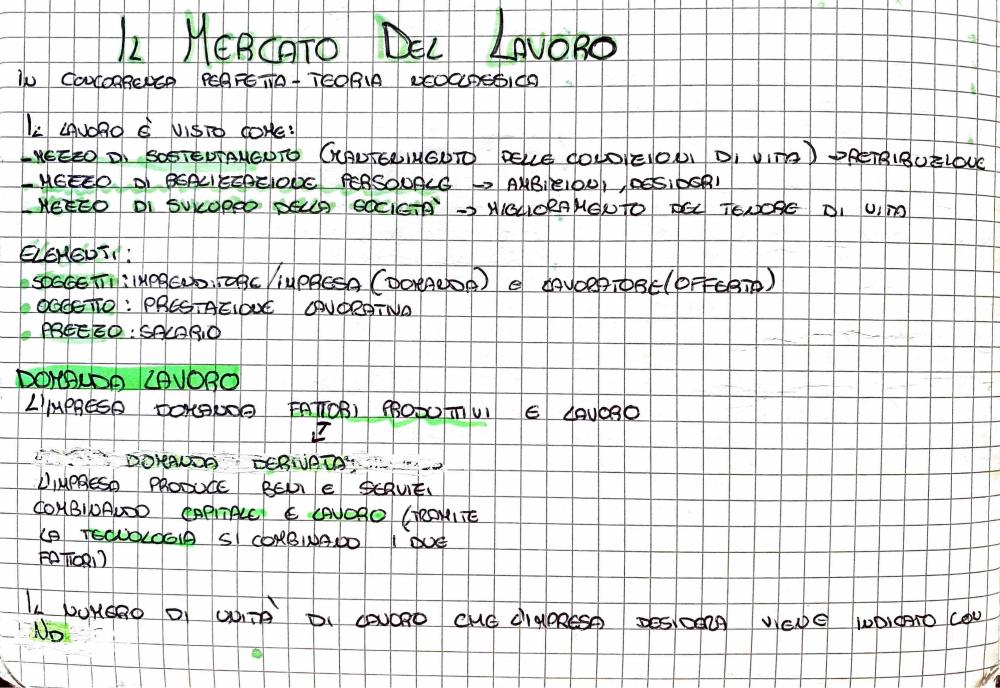 IL MERCATO DEL LAVORO
IN CONCORRENZA PERFETTA - TEORIA NEOCLASSICA
IL LAVORO È VISTO COME:
- MEZZO DI SOSTENTAMENTO (MANTENIMENTO DELLE CONDIZIONI DI VITA) → RETRIBUZIONE
- MEZZO DI REALIZZAZIONE PERSONALE → AMBIZIONI, DESIDERI
- MEZZO DI SVILUPPO DELLA SOCIETÀ → MIGLIORAMENTO DEL TENORE DI VITA
ELEMENTI:
• SOGGETTI: IMPRENDITORE/IMPRESA (DOMANDA) E LAVORATORE (OFFERTA)
• OGGETTO: PRESTAZIONE LAVORATIVA
• PREZZO: SALARIO
DOMANDA LAVORO
L'IMPRESA DOMANDA FATTORI PRODUTTIVI E LAVORO
DOMANDA DERIVATA:
L'IMPRESA PRODUCE BENI E SERVIZI
COMBINANDO CAPITALE E LAVORO (TRAMITE
LA TECNOLOGIA SI COMBINANO I DUE
FATTORI)
IL NUMERO DI UNITÀ DI LAVORO CHE L'IMPRESA DESIDERA VIENE INDICATO CON
ND